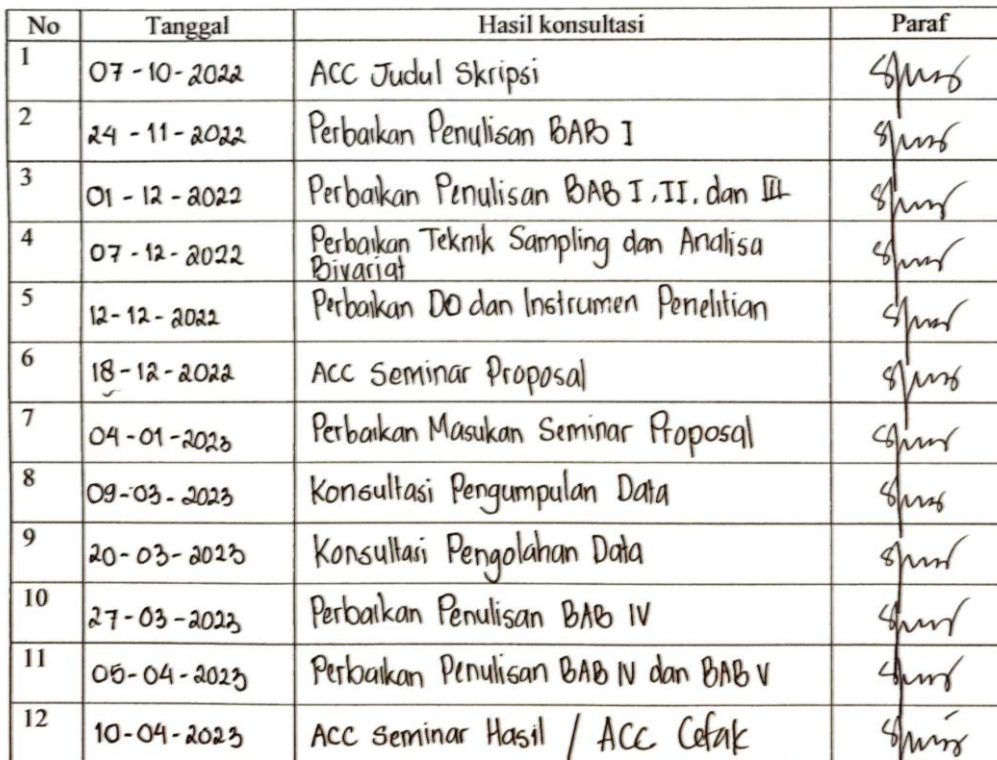 No Tanggal Hasil konsultasi Paraf
1 07-10-2022 ACC Judul Skripsi
2 24-11-2022 Perbaikan Penulisan BAB I
3 01-12-2022 Perbaikan Penulisan BAB I, II, dan III
4 07-12-2022 Perbaikan Teknik Sampling dan Analisa
Bivariat
5 12-12-2022 Perbaikan DO dan Instrumen Penelitian
6 18-12-2022 ACC Seminar Proposal
7 04-01-2023 Perbaikan Masukan Seminar Proposal
8 09-03-2023 Konsultasi Pengumpulan Data
9 20-03-2023 Konsultasi Pengolahan Data
10 27-03-2023 Perbaikan Penulisan BAB IV
11 05-04-2023 Perbaikan Penulisan BAB IV dan BAB V
12 10-04-2023 ACC Seminar Hasil / ACC Cetak